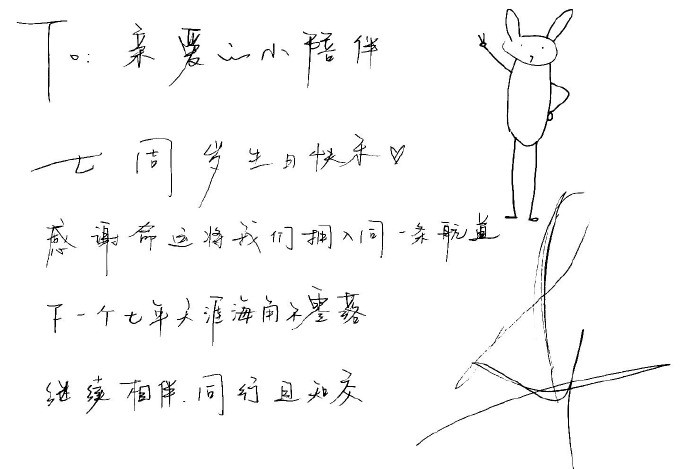 To: 亲爱的小陪伴
七周岁生日快乐♡
感谢命运将我们拥入同一条航道
下一个七年天涯海角不零落
继续相伴.同行且知交